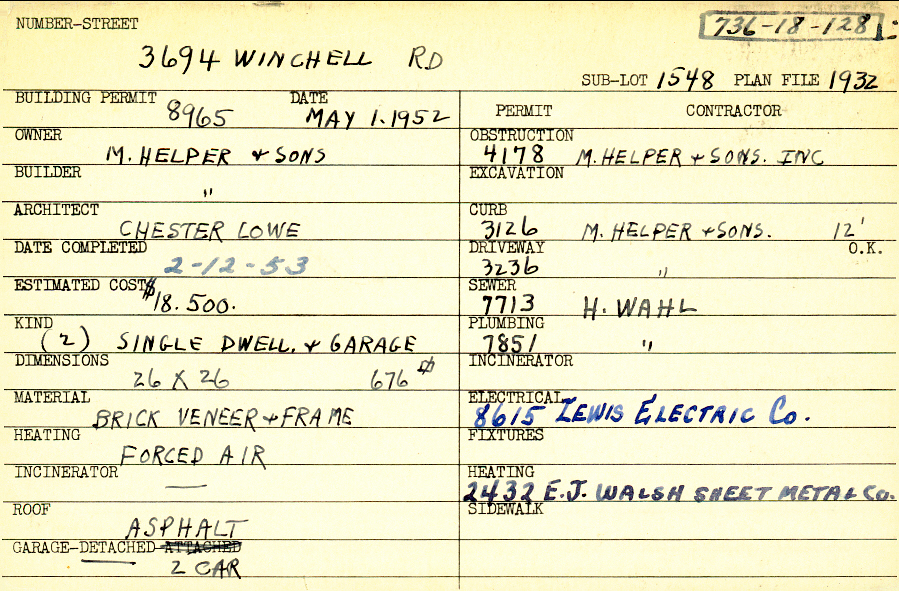 NUMBER-STREET
736-18-128
3694 WINCHELL RD
SUB-LOT 1548 PLAN FILE 1932
BUILDING PERMIT 8965 DATE MAY 1.1952
PERMIT CONTRACTOR
OWNER M. HELPER & SONS
OBSTRUCTION 4178 M. HELPER & SONS. INC
BUILDER "
EXCAVATION
ARCHITECT CHESTER LOWE
CURB 3126 M. HELPER & SONS. 12'
DATE COMPLETED 2-12-53
DRIVEWAY 3236 " O.K.
ESTIMATED COST $18.500.
SEWER 7713 H. WAHL
KIND (2) SINGLE DWELL. & GARAGE
PLUMBING 7851 "
DIMENSIONS 26 X 26 676
INCINERATOR
MATERIAL BRICK VENEER & FRAME
ELECTRICAL 8615 LEWIS ELECTRIC CO.
HEATING FORCED AIR
FIXTURES
INCINERATOR —
HEATING 2432 E.J. WALSH SHEET METAL CO.
ROOF ASPHALT
SIDEWALK
GARAGE-DETACHED ATTACHED
2 CAR